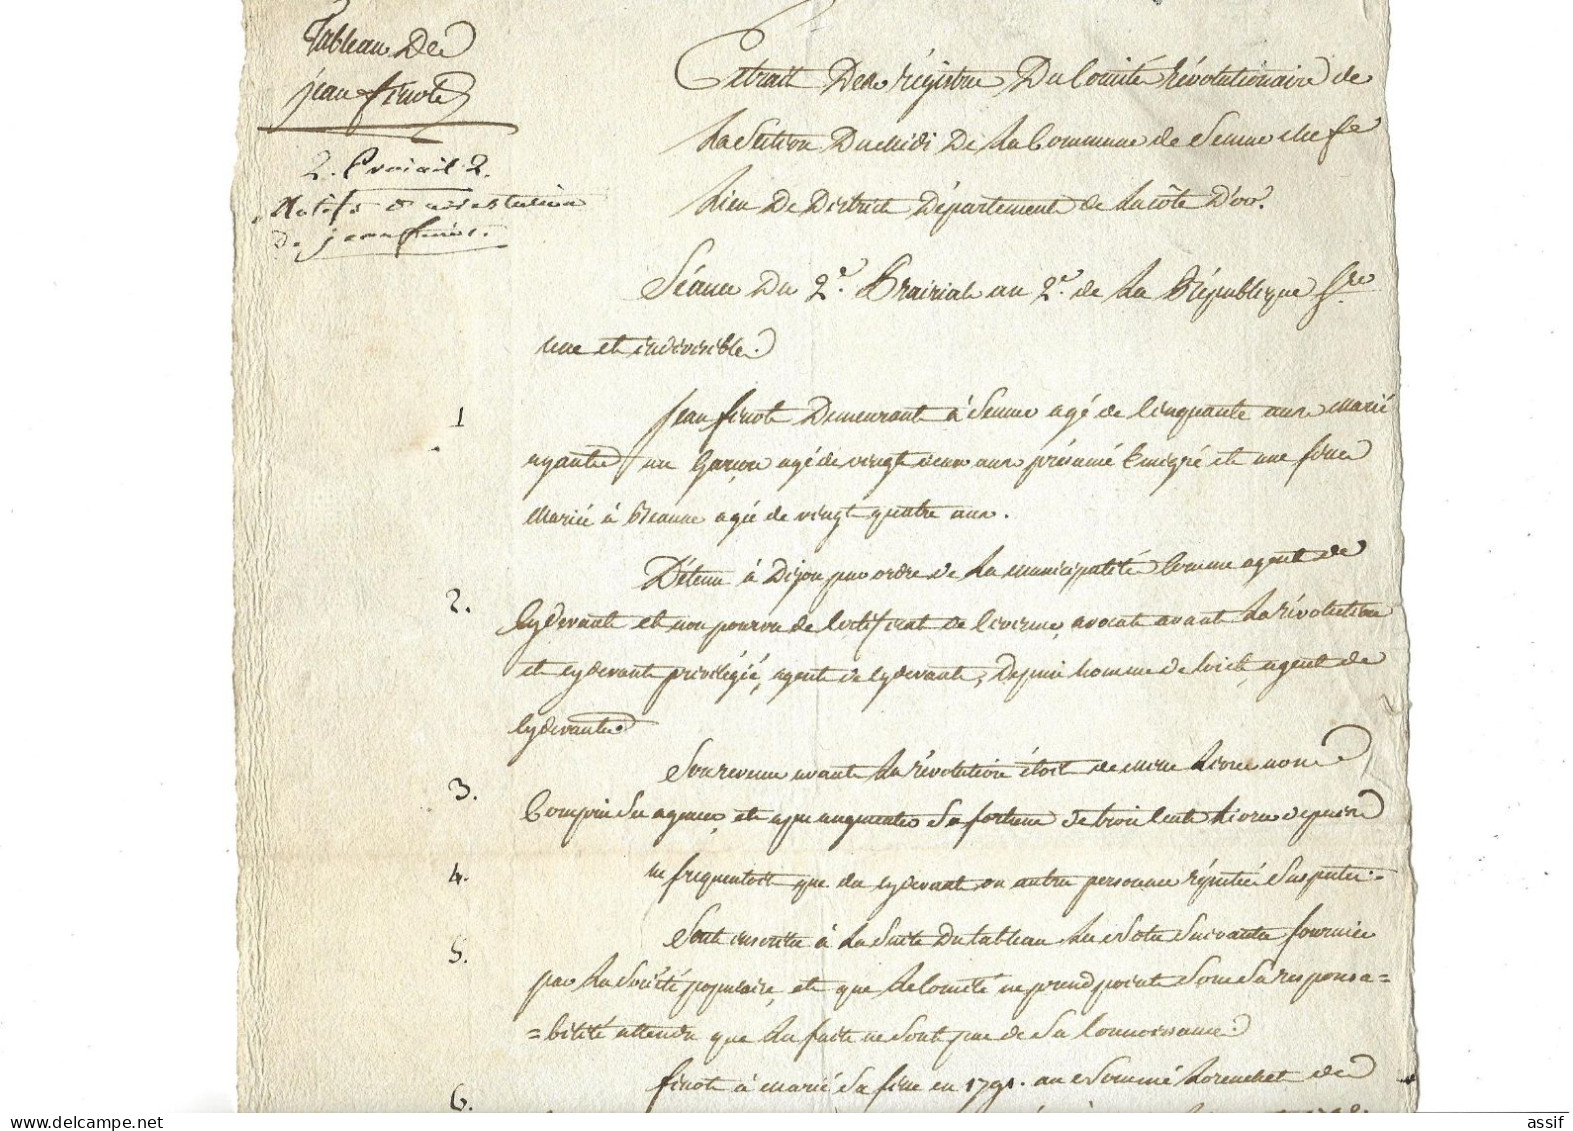 Tableau De
jean finot
2. Prairial 2.
Motifs d'arestation
de jean finot.
Extrait Des régistre Du Comité révolutionaire de
La Section Du midi De La Commune de Semur chef
Lieu De District Département de La côte D'or.
Séance Du 2e. Prairial an 2e. de La République fre
une et indivisible.
1
jean finot Demeurant à Semur agé de Cinquante ans marié
ayant un Garçon agé de vingt deux ans présumé Emigré et une fille
Mariée à Beaune agée de vingt quatre ans.
2.
Détenu à Dijon par ordre de La municipalité Comme agent de
Cydevant et non pourvu de Certificat de Civisme, avocat avant La révolution
et cydevant privilégié, agent de cydevant, Depuis homme de Loix, agent de
Cydevant.
3.
Son revenu avant La révolution étoit de mille Livres non
Compris Ses agences, et a peu augmenté Sa fortune de trois Cents Livres depuis
4.
ne frequentoit que des cydevant ou autres personnes réputées Suspectes.
5.
Sont inscrites à La Suite Du tableau Les Notes Suivantes fournies
par La Société populaire, et que Le Comité ne prend point Sous Sa responsa=
=bilité attendu que Les faits ne Sont pas de Sa Connoissance.
6.
finot à marié Sa fille en 1791. au Nommé Lorenchet de